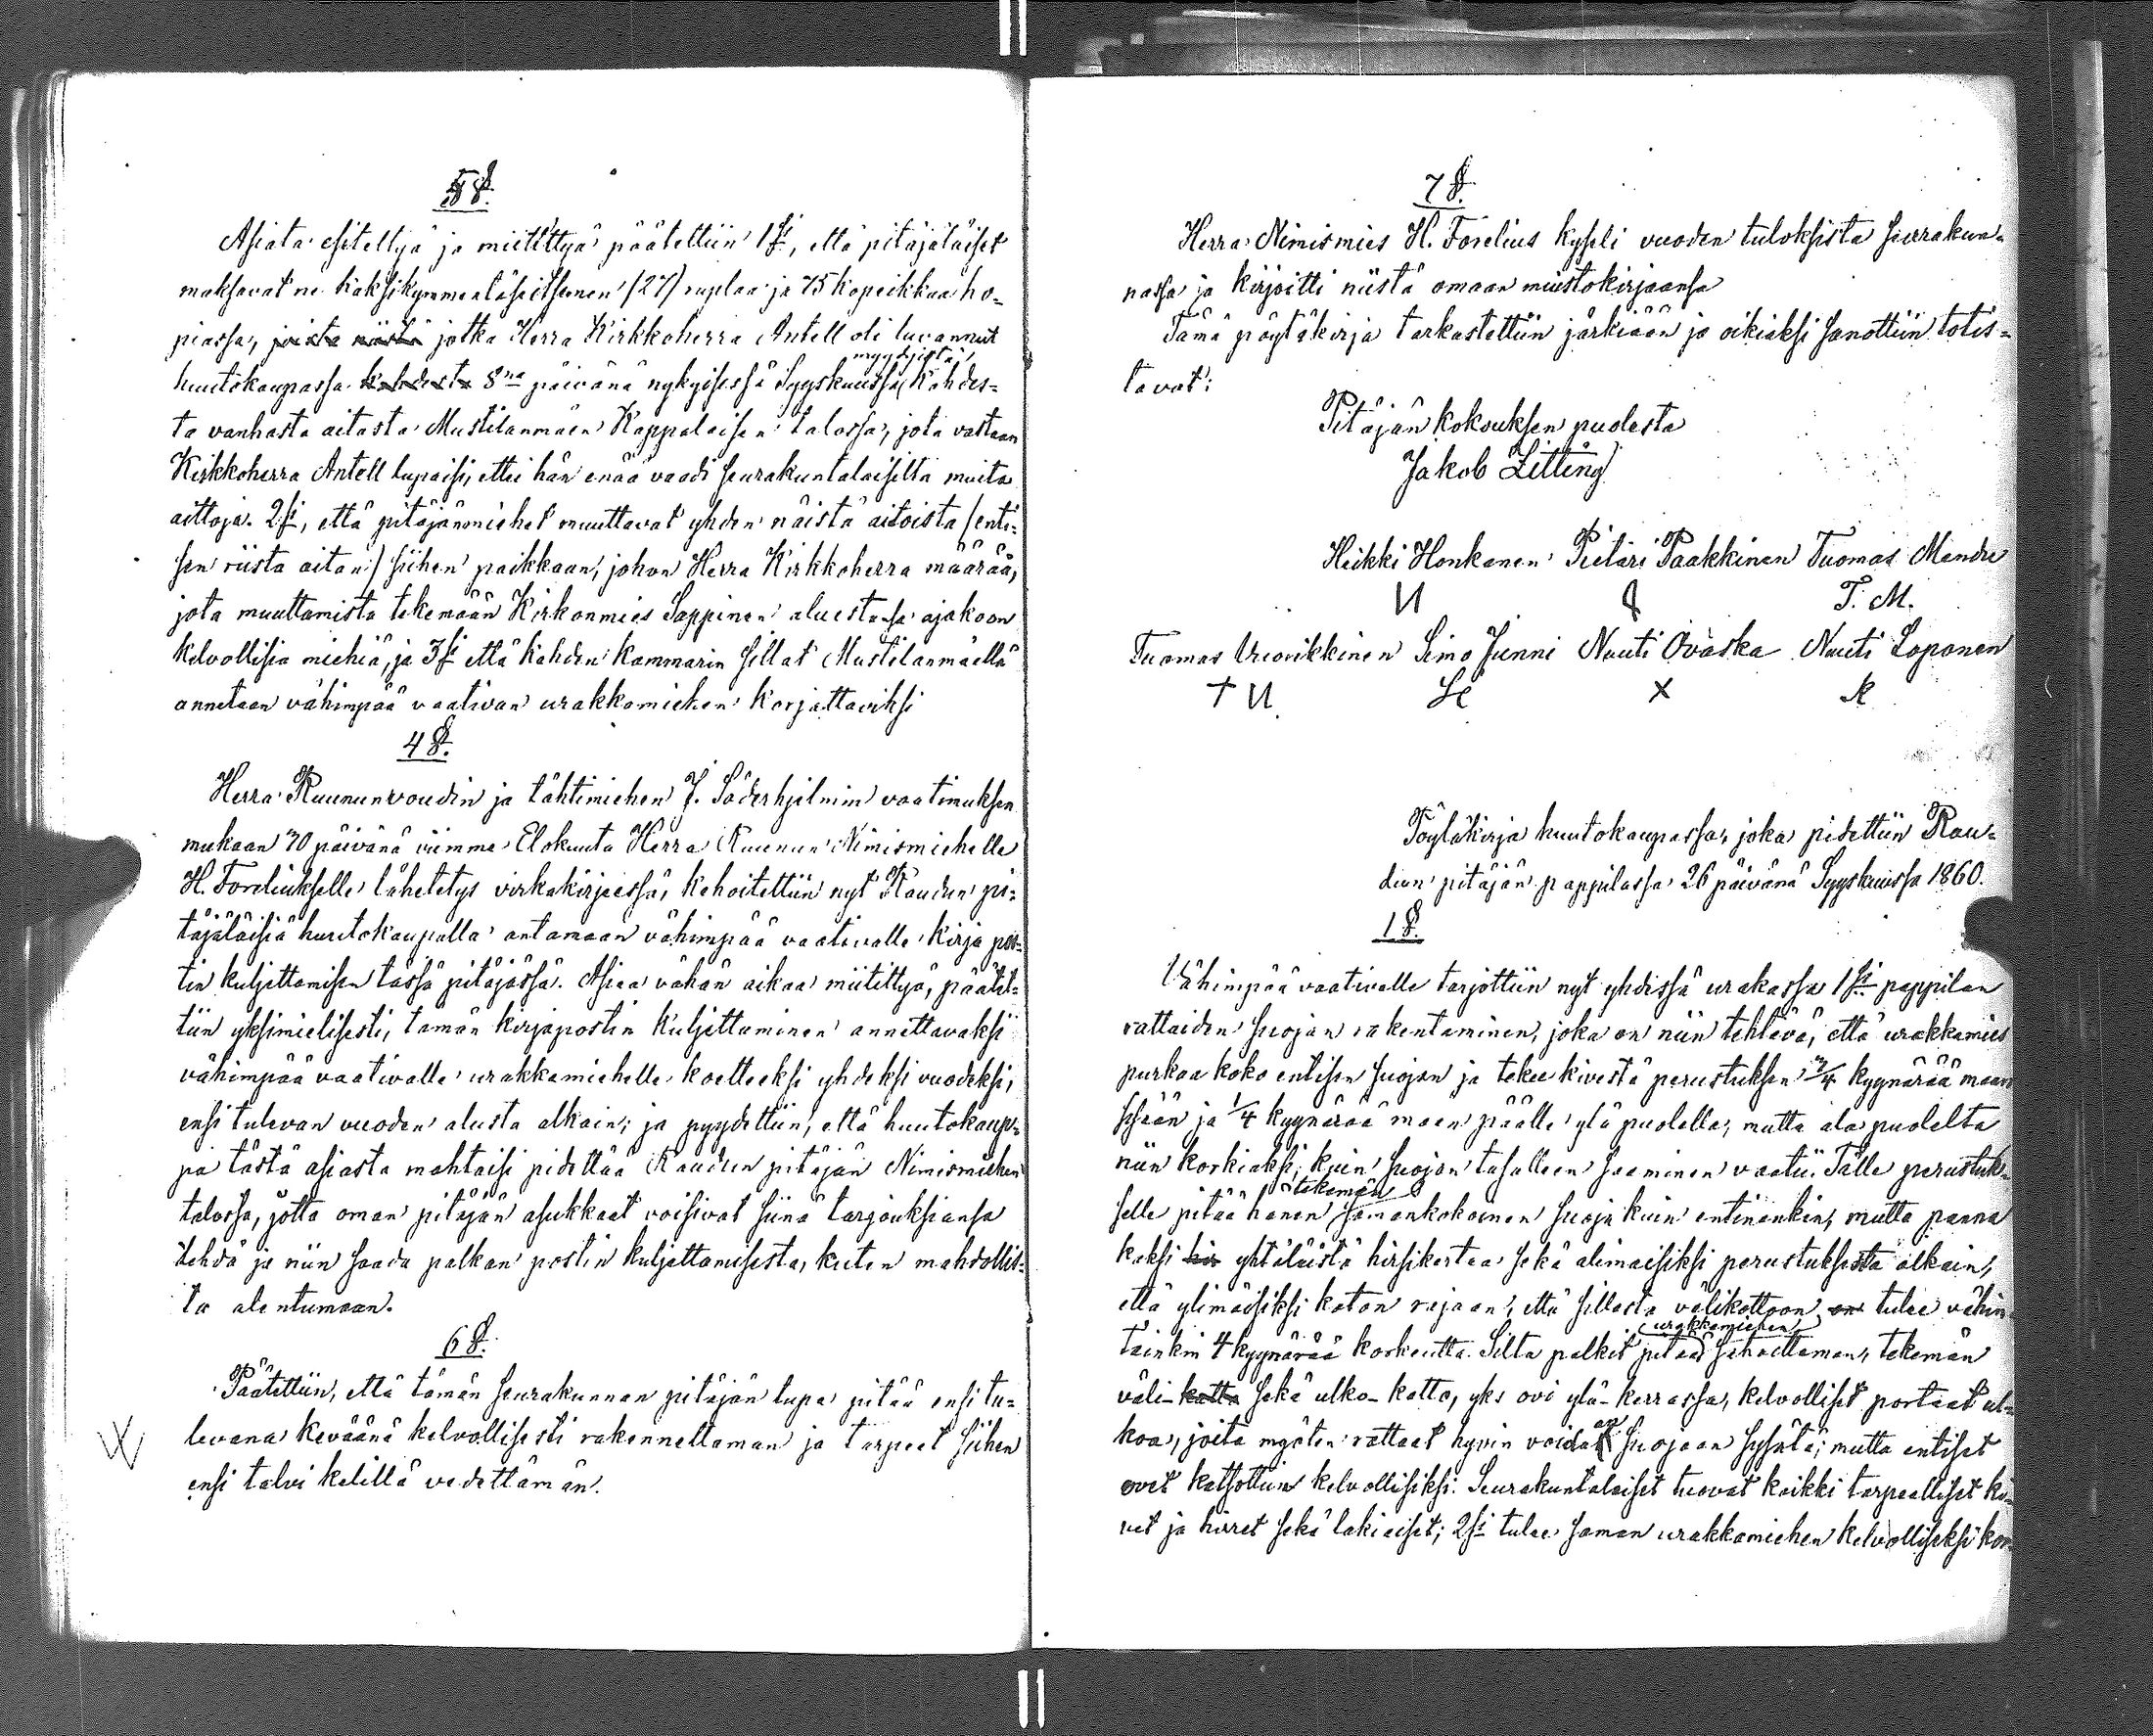 5 §.
Asiata esiteltyä ja miitittyä päätettiin 1ksi, että pitäjäläiset
maksavat ne kaksikymmentäseitsemen (27) ruplaa ja 75 kopeikkaa ho=
piassa, joista niistä jotka Herra Kirkkoherra Antell oli luvannut
myydyistä
huutokaupassa kahdesta 8na päivänä nykyisessä Syyskuussa kahdes=
ta vanhasta aitasta Mustilanmäen Kappalaisen talossa, jota vastaan
Kirkkoherra Antell lupaisi, ettei hän enää vaadi seurakuntalaisilta muita
aittoja. 2ksi, että pitäjänmiehet muuttavat yhden näistä aitoista (enti=
sen riista aitan) siihen paikkaan, johon Herra Kirkkoherra määrää,
jota muuttamista tekemään Kirkonmies Sappinen aluestansa ajakoon
kelvollisia miehiä, ja 3ksi että kahden kammarin sillat Mustilanmäellä
annetaan vähimpää vaativan urakkamiehen korjattaviksi
4 §.
Herra Ruununvoudin ja tähtimiehen J. Söderhjelmin vaatimuksen
mukaan 30 päivänä viimme Elokuuta Herra Ruunun Nimismiehelle
H. Foreliukselle lähetetys virkakirjeessä, kehoitettiin nyt Raudun pi=
täjäläisiä huutokaupalla antamaan vähimpää vaativalle kirja pos=
tin kuljettamisen tässä pitäjässä. Asiaa vähän aikaa miitittyä, päätet=
tiin yksimielisesti, tämän kirjapostin kuljettaminen annettavaksi
vähimpää vaativalle urakkamiehelle koetteeksi yhdeksi vuodeksi,
ensi tulevan vuoden alusta alkain; ja pyydettiin, että huutokaup=
pa tästä asiasta mahtaisi pidettää Raudun pitäjän Nimismiehen
talossa, jotta oman pitäjän asukkaat voisivat siinä tarjouksiansa
tehdä ja niin saada palkan postin kuljettamisesta, kuten mahdollis=
ta alentumaan.
6 §.
Päätettiin, että tämän seurakunnan pitäjän tupa pitää ensi tu=
levana kevaänä kelvollisesti rakennettaman ja tarpeet siihen
ensi talvi kelillä vedettämän.
7 §.
Herra Nimismies H. Forelius kyseli vuoden tuloksista seurakun=
nassa ja kirjoitti niistä omaan muistokirjaansa
Tämä pöytäkirja tarkastettiin järkiään ja oikiaksi sanottiin totis=
tavat:
Pitäjän kokouksen puolesta
Jakob Litting
Heikki Honkanen Pietari Paakkinen Tuomas Mandu
T. M.
Tuomas Vuorikkinen Simo Junni Nuuti Ovaska Nuuti Loponen
X
Pöytäkirja huutokaupassa, joka pidettiin Rau=
dun pitäjän pappilassa 26 päivänä Syyskuussa 1860.
1 §.
Vähimpää vaativalle tarjottiin nyt yhdissä urakassa 1ksi pappilan
rattaiden suojan rakentaminen, joka on niin tehtävä, että urakkamies
purkaa koko entisen suojan ja tekee kivestä perustuksen 3/4 kyynärää maan
sisään ja 1/4 kyynärää maan päälle ylä puolella; mutta ala puolelta
niin korkiaksi, kuin suojan tasalleen saaminen vaatii. Tälle perustuk=
tekemän
selle pitää hänen samankokoinen suoja kuin entinenkin, mutta panna
kaksi hir yhtäläistä hirsikertaa sekä alimaisiksi perustuksesta alkain,
että ylimäisiksi katon rajaan, että sillasta välikattoon on tulee vähin
urakkamiehen
täinkin 4 kyynärää korkeutta. Silta palkit pitää sahattaman, tekemän
väli-katto sekä ulko-katto, yks ovi ylä-kerrassa, kelvolliset portaat ul=
koa, joita myöten rattaat hyvin voidaan suojaan sysätä; mutta entiset
ovet katsottiin kelvollisiksi. Seurakuntalaiset tuovat kaikki tarpeelliset ki=
vet ja hirret sekä lakiaiset; 2ksi tulee saman urakkamiehen kelvolliseksi kor=